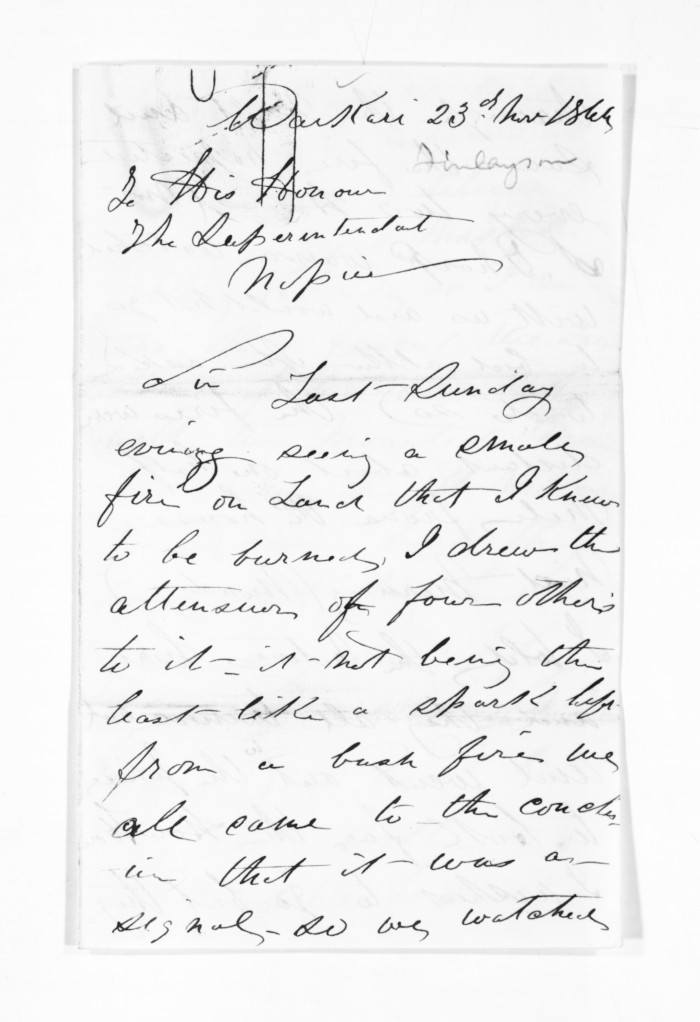 23d Nov 1866
Finlayson
To His Honour
The Superintendat
Napier
Sir Last Sunday
evining seeing a small
fire on Land that I knew
to be burned, I drew the
attension of four others
to it - it not being the
least like a spark left
from a bush fire we
all came to the conclu-
ion that it was a
signal - so we watched